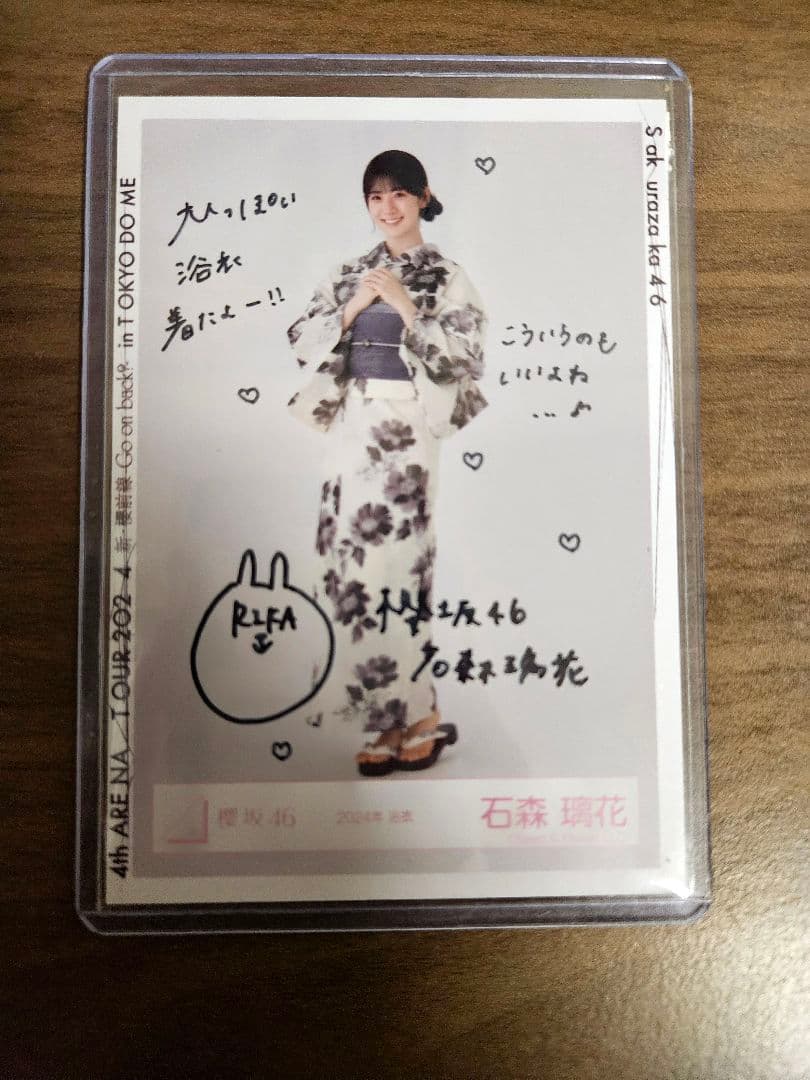 大人っぽい
浴衣
着たよー!!
こういうのも
いいよね
...♪
RIKA
櫻坂46
石森璃花
櫻坂46 2024年 浴衣 石森 璃花
4th ARENA TOUR 2024 新・櫻前線 -Go on back?- in TOKYO DOME
Sakurazaka46